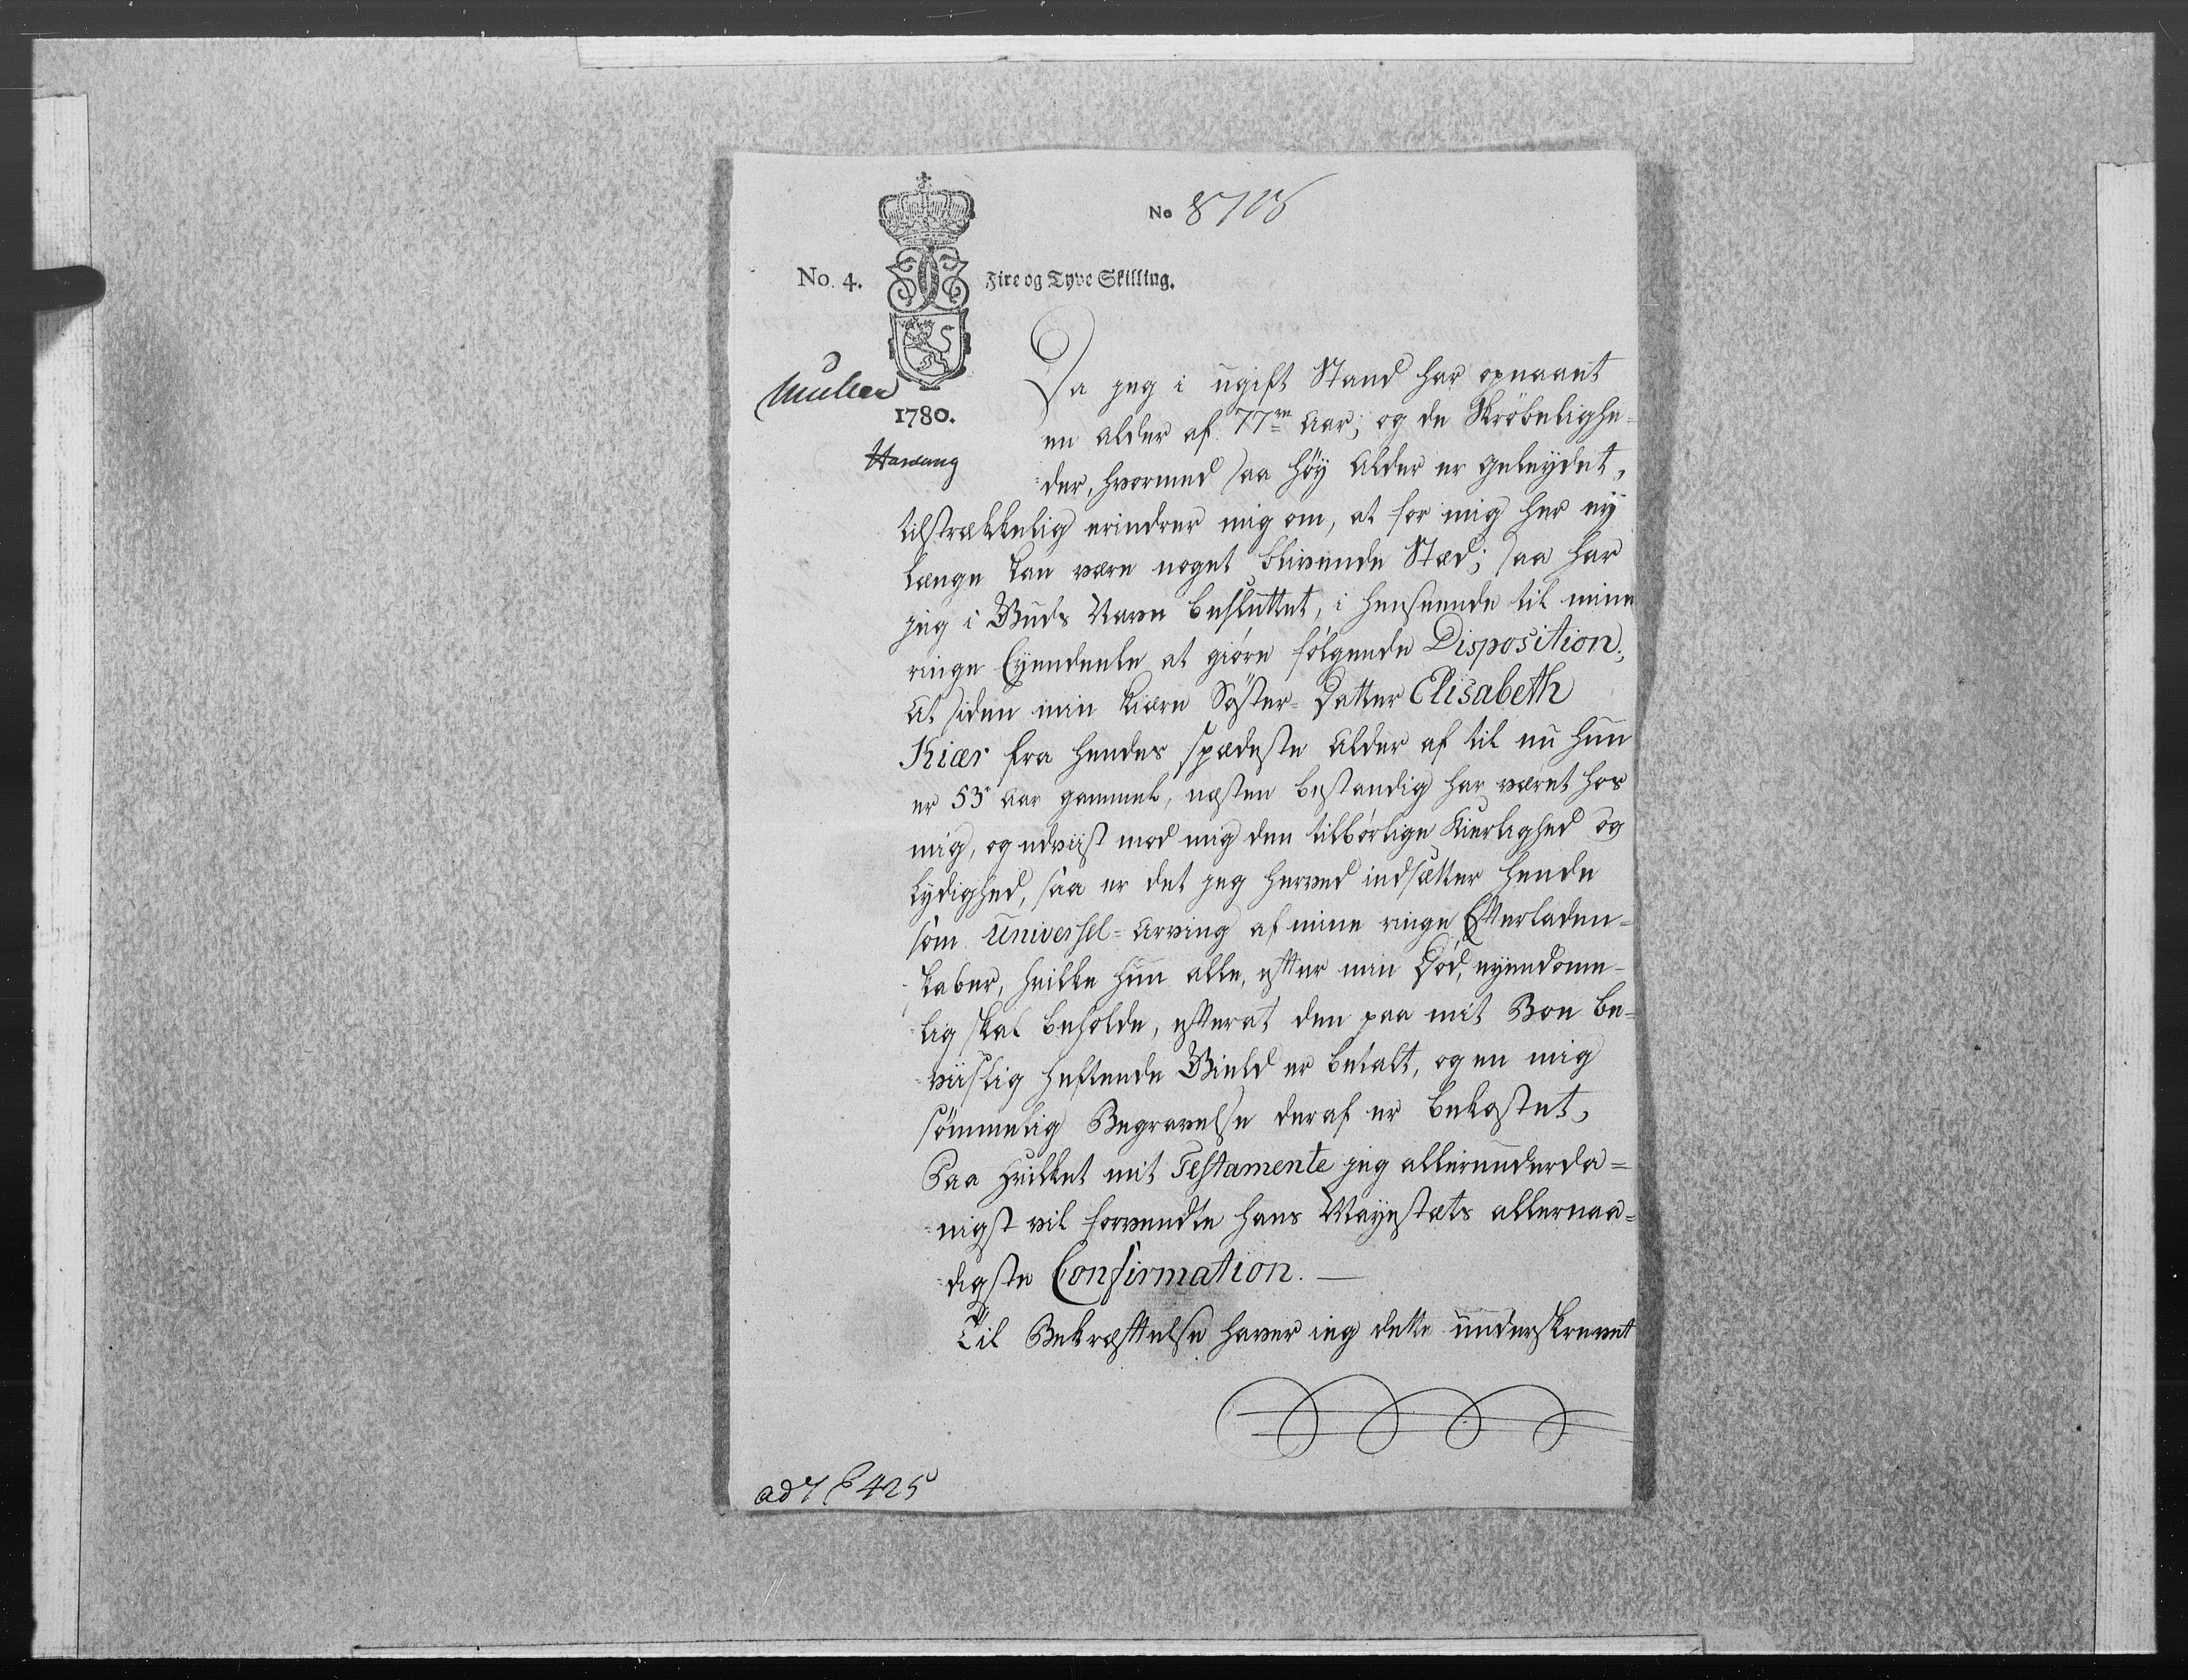 No 8705
No. 4. Fire og Tyve Skilling.
Müller
1780.
Da jeg i ugift Stand har opnaaet
en alder af 77ve Aar; og de Skröbelighe-
der, hvormed saa höÿ Alder er geleÿdet,
tilstrækkelig erindrer mig om, at for mig her eÿ
længe kan være noget blivende Stæd; saa har
jeg i Guds Navn besluttet, i henseende til mine
ringe Eÿendeele at giöre fölgende Disposition;
At siden min kiære Söster-Datter Elisabeth
Kiær fra hendes spædeste Alder af til nu hun
er 53 Aar gammel, næsten bestandig har været hos
mig, og udviist mod mig den tilbörlige Kierlighed og
Lydighed, saa er det jeg herved indsætter hende
som Universel-Arving af mine ringe Efterladen-
skaber, hvilke hun alle, efter min Död, eÿendom-
lig skal beholde, efterat den paa mit Boe be-
viislig heftende Gield er betalt, og en mig
sömmelig Begravelse deraf er bekostet,
Paa hvilket mit Testamente jeg allerunderda=
nigst vil forvendte Hans Mayestæts allernaa=
digste Confirmation. —
Til Bekræftelse haver jeg dette underskrevet
ad 7 425